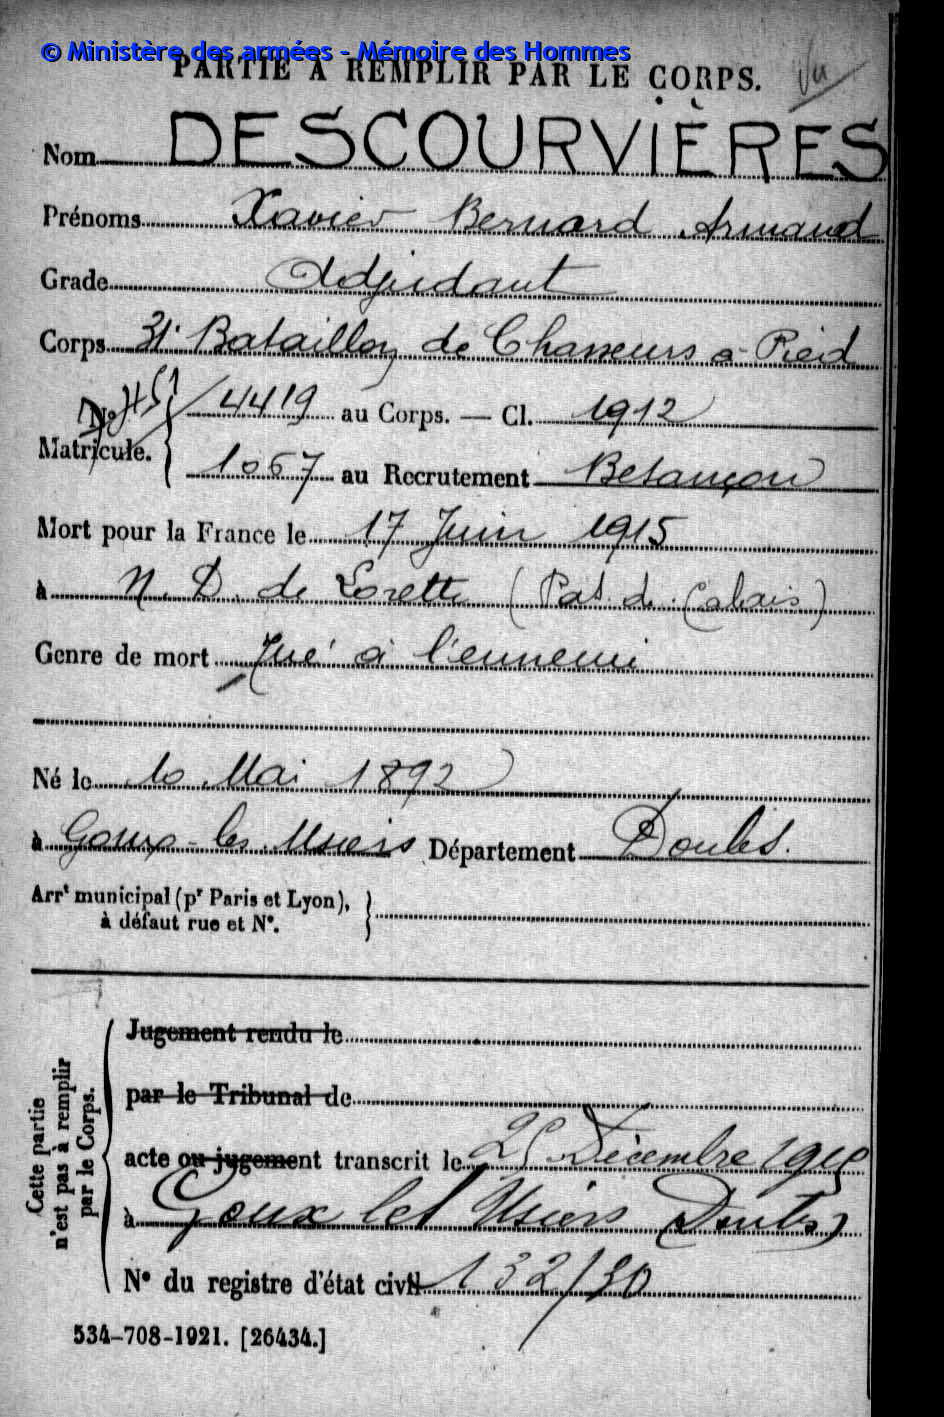 © Ministère des armées - Mémoire des Hommes
PARTIE À REMPLIR PAR LE CORPS.
Vu
Nom DESCOURVIÈRES
Prénoms Xavier Bernard Armand
Grade Adjudant
Corps 31e Bataillon de Chasseurs à Pied
No 4419 au Corps. — Cl. 1912
Matricule. 1067 au Recrutement Besançon
Mort pour la France le 17 Juin 1915
à N. D. de Lorette (Pas. de. Calais)
Genre de mort Tué à l'ennemi
Né le 10 Mai 1892
à Goux-les Usiers Département Doubs.
Arrt municipal (pr Paris et Lyon),
à défaut rue et N°.
Cette partie
n'est pas à remplir
par le Corps.
Jugement rendu le
par le Tribunal de
acte ou jugement transcrit le 25 Décembre 1915
à Goux les Usiers (Doubs)
N° du registre d'état civil 132/30
534-708-1921. [26434.]